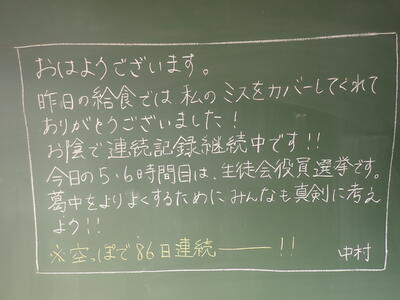 おはようございます。
昨日の給食では私のミスをカバーしてくれて
ありがとうございました！
お陰で連続記録継続中です!!
今日の5・6時間目は、生徒会役員選挙です。
葛中をよりよくするためにみんなも真剣に考え
よう!!
※空っぽで86日連続――!!
中村